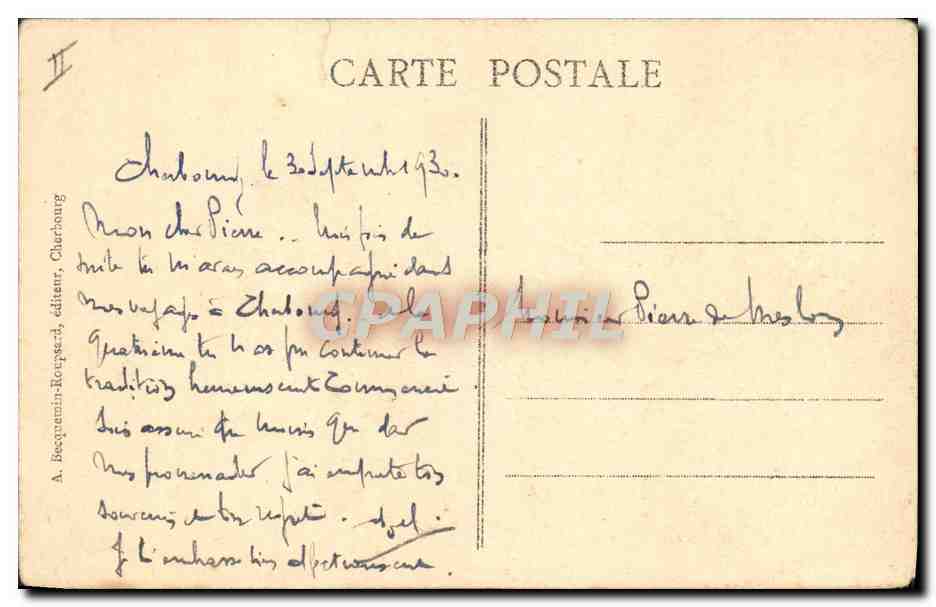 II
CARTE POSTALE
A. Becquemin-Roupsard, éditeur, Cherbourg
Cherbourg, le 30 Septembre 1930.
Mon cher Pierre .. trois fois de
suite tu m'avais accompagné dans
mes voyages à Cherbourg. à la
quatrième tu n'as pu continuer la
tradition heureusement commencée.
Sois assuré du moins que dans
mes promenades j'ai emporté ton
souvenir et ton regret.
Je t'embrasse bien affectueusement.
Monsieur Pierre de
CPAPHIL